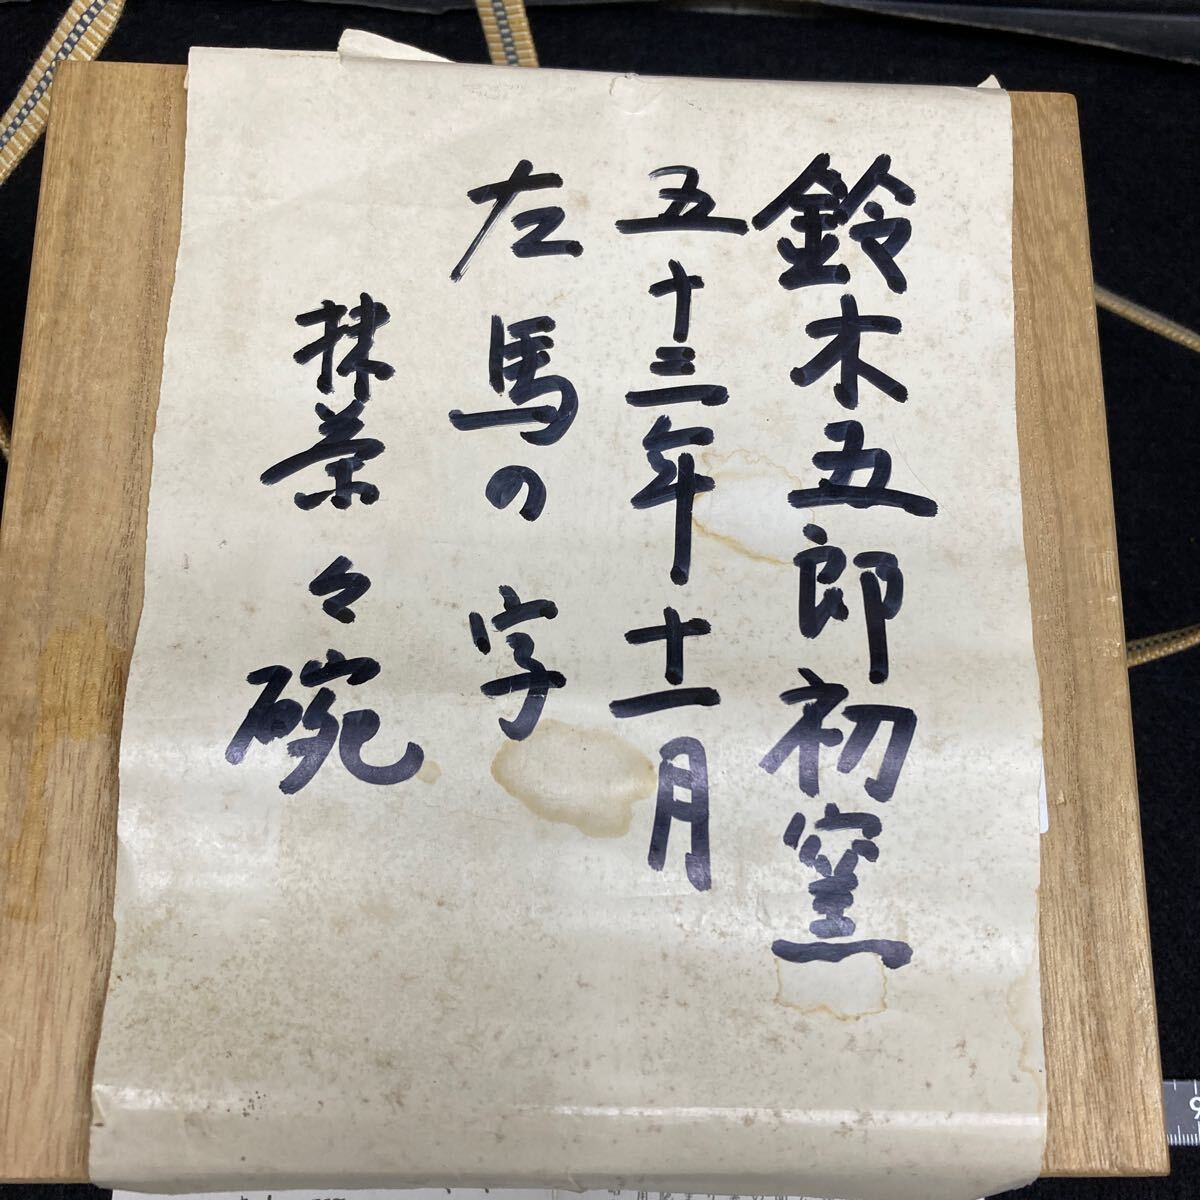 鈴木五郎初窯
五十三年十一月
左馬の字
抹茶々碗
9